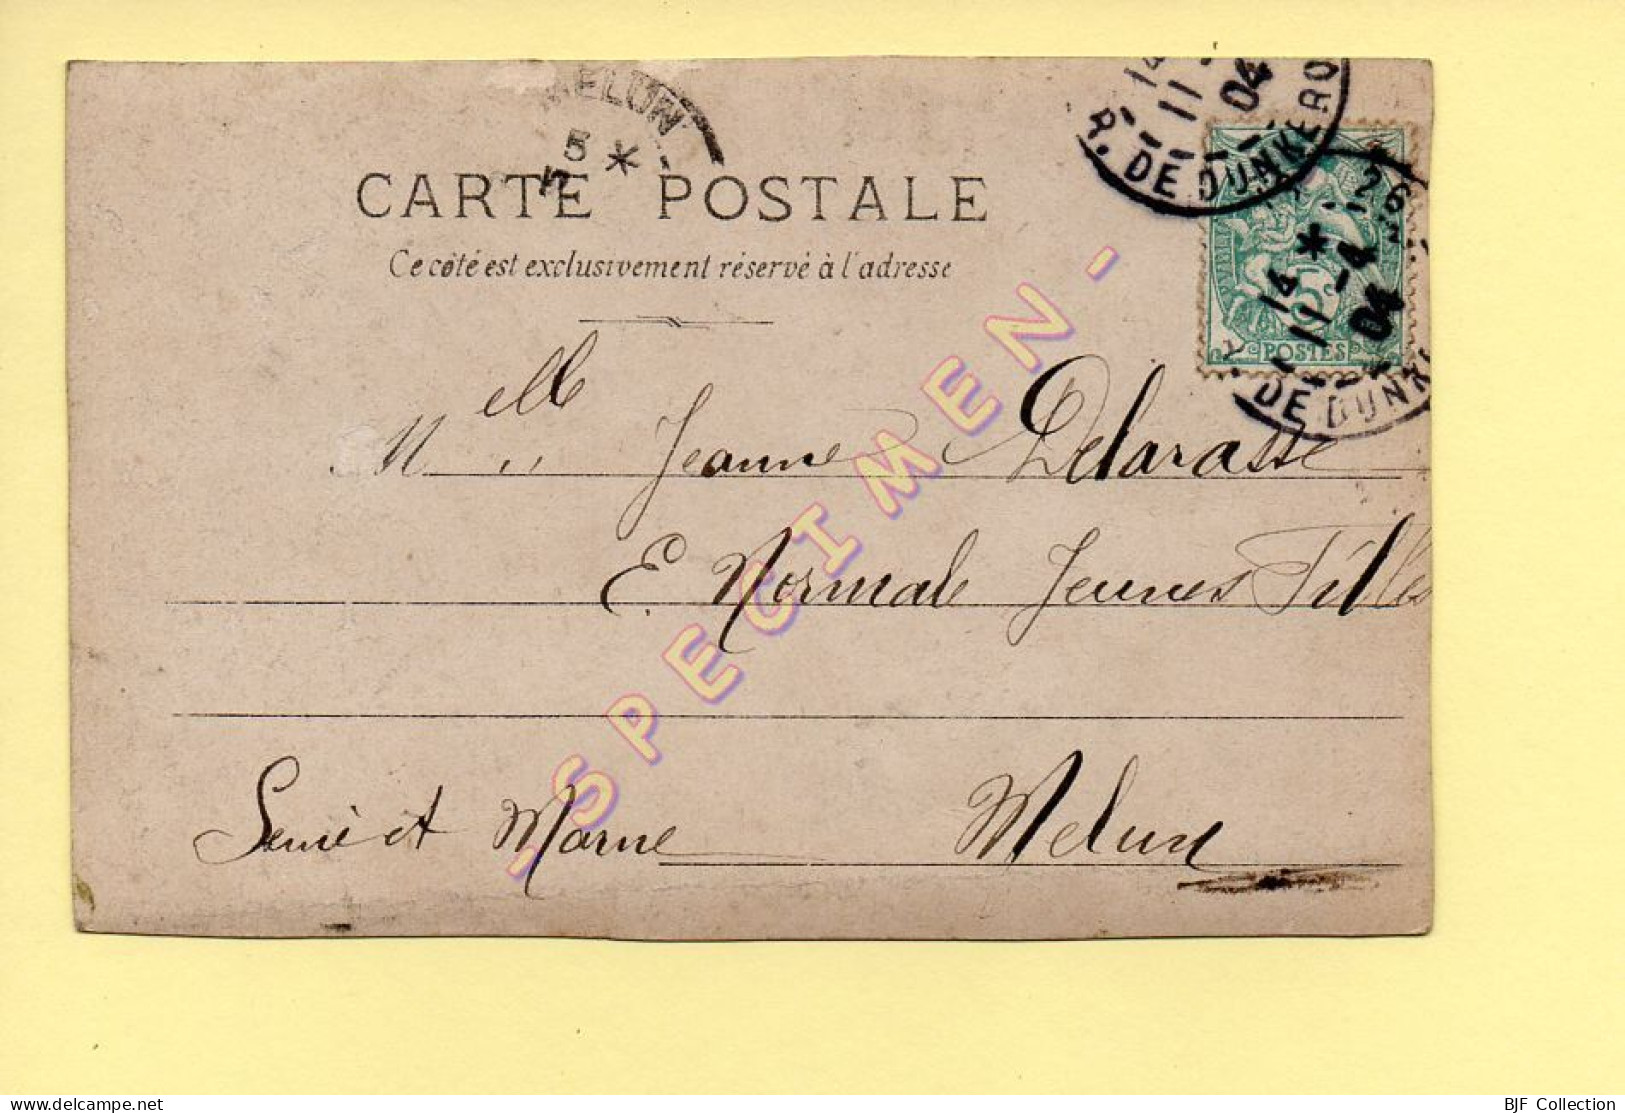 MELUN
5
*
R. DE DUNKERQ
14
11
04
CARTE POSTALE
Ce côté est exclusivement réservé à l'adresse
14 *
11 -4
04
26
DE DUNK
5
POSTES
Melle Jeanne Delarasse
E. Normale Jeunes Filles
Seine et Marne Melun
- SPECIMEN -
BJF Collection